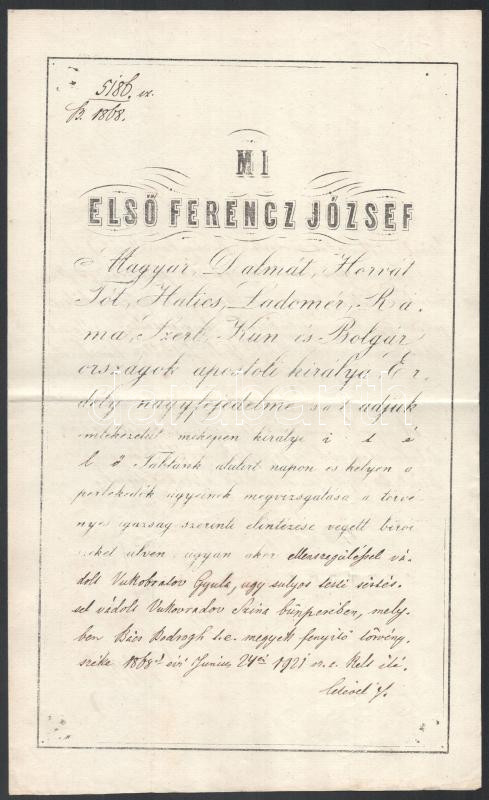 5186. sz.
B. 1868.
MI
ELSŐ FERENCZ JÓZSEF
Magyar, Dalmát, Horvát
Tót, Halics, Ladomér, Rá,
ma, Szerb, Kún és Bolgár
országok apostoli királya Er,
dély nagyfejedelme sat adjuk
emlékezetül miképen királyi i t é
l ő Táblánk alulirt napon és helyen a
perlekedők ügyeinek megvizsgálása a törvé
nyes igazság szerinti elintézése végett birói
széket ülvén, ugyan akor ellenszegüléssel vá-
dolt Vukobratov Gyula, ugy sulyos testi sértés-
sel vádolt Vukovradov Szima bűnperében, mely-
ben Bács Bodrogh t. e. megyék fenyitő törvény
széke 1868 évi Junius 24én 1921 sz. a. kelt ité-